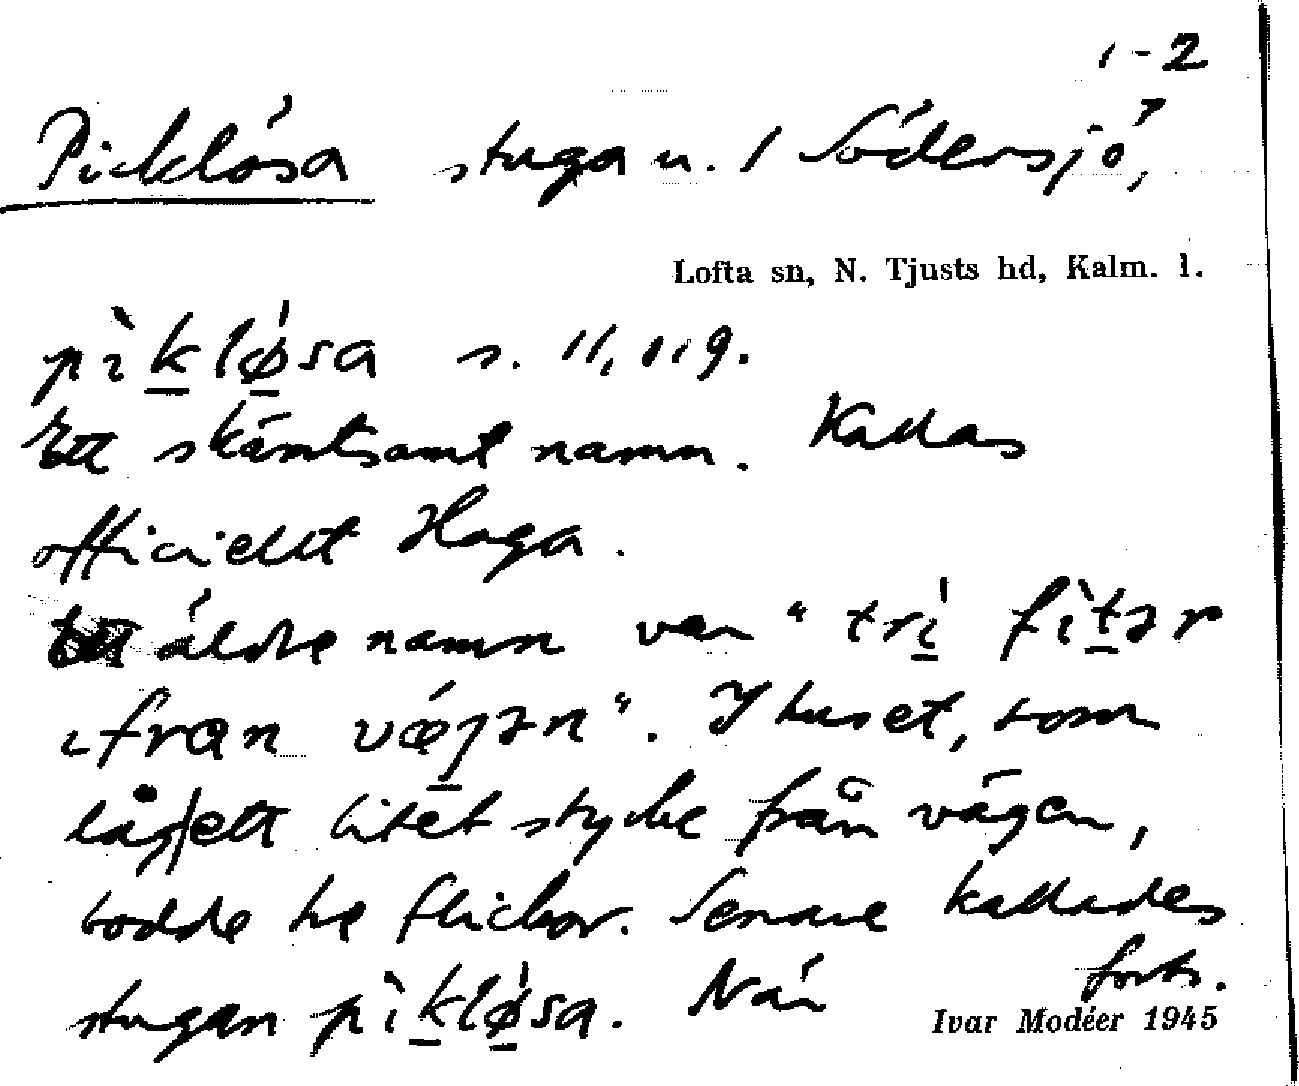 1-2
Picklösa stuga u. 1 Södersjö,
Lofta sn, N. Tjusts hd, Kalm. l.
pìkløsa s. 11, 119.
Ett skämtsamt namn. Kallas
officiellt Haga.
äldre namn var "trì fìtər
ifran væjən". I huset, som
låg ett litet stycke från vägen,
bodde tre flickor. Senare kallades
stugan pìkløsa. När forts.
Ivar Modéer 1945